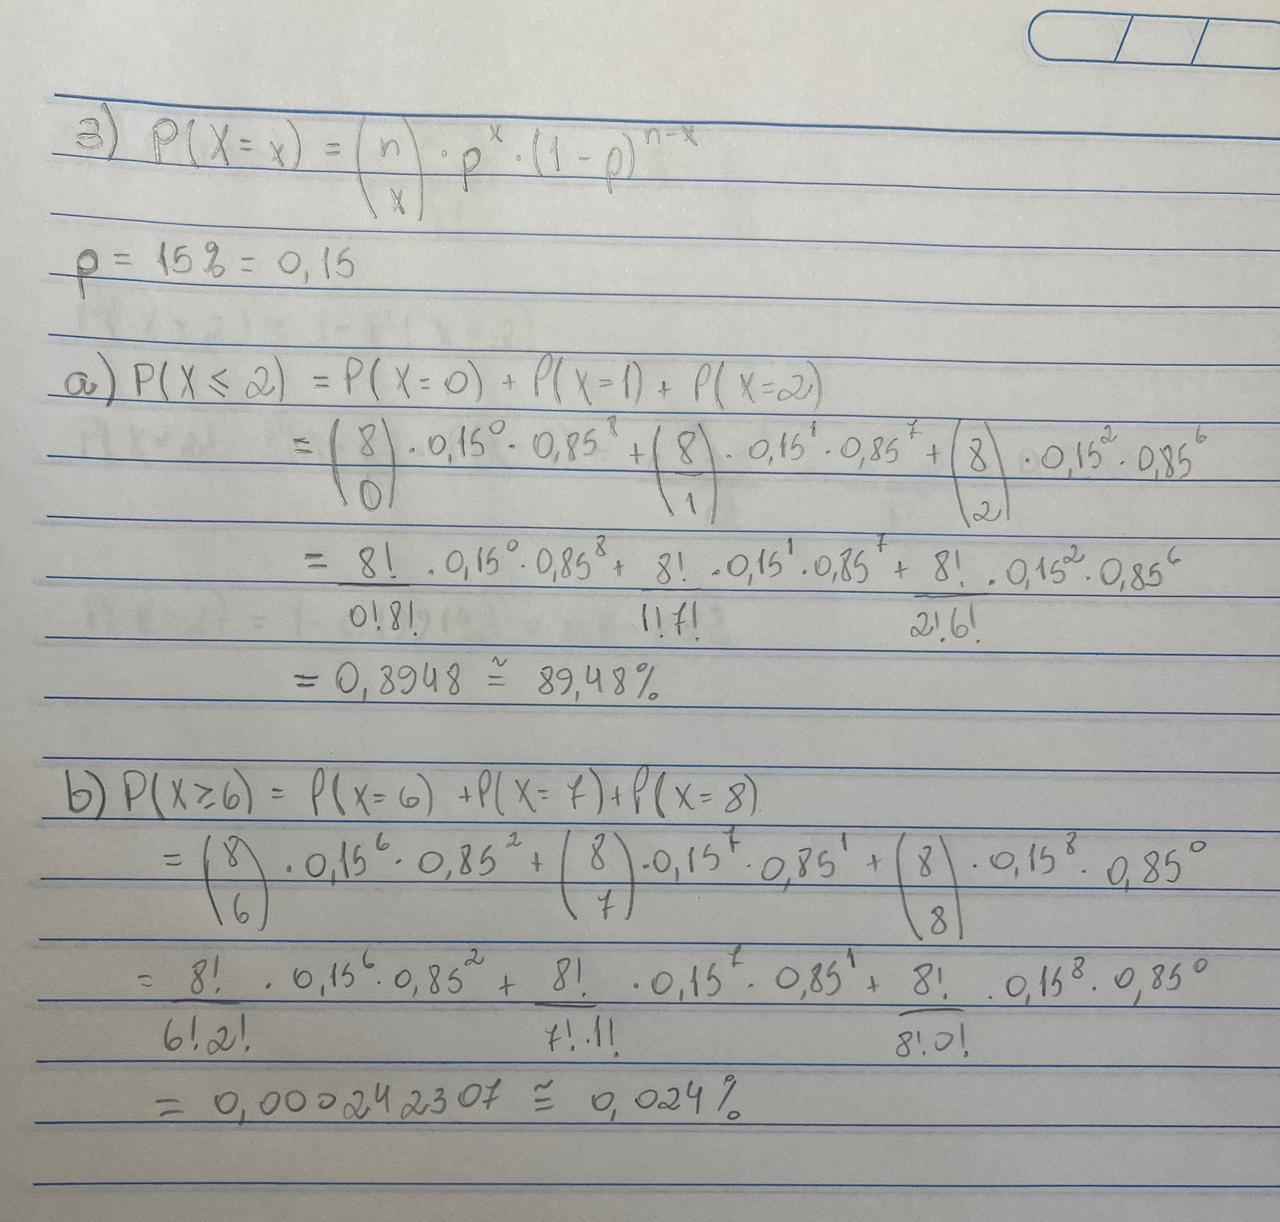 3) P(X = x) = (n x) · p^x · (1 - p)^{n-x}
p = 15% = 0,15
a) P(X ≤ 2) = P(X = 0) + P(X = 1) + P(X = 2)
= (8 0) · 0,15^0 · 0,85^8 + (8 1) · 0,15^1 · 0,85^7 + (8 2) · 0,15^2 · 0,85^6
= 8!/0!8! · 0,15^0 · 0,85^8 + 8!/1!7! · 0,15^1 · 0,85^7 + 8!/2!6! · 0,15^2 · 0,85^6
= 0,8948 ≅ 89,48%
b) P(X ≥ 6) = P(X = 6) + P(X = 7) + P(X = 8)
= (8 6) · 0,15^6 · 0,85^2 + (8 7) · 0,15^7 · 0,85^1 + (8 8) · 0,15^8 · 0,85^0
= 8!/6!2! · 0,15^6 · 0,85^2 + 8!/7!·1! · 0,15^7 · 0,85^1 + 8!/8!0! · 0,15^8 · 0,85^0
= 0,000242307 ≅ 0,024%